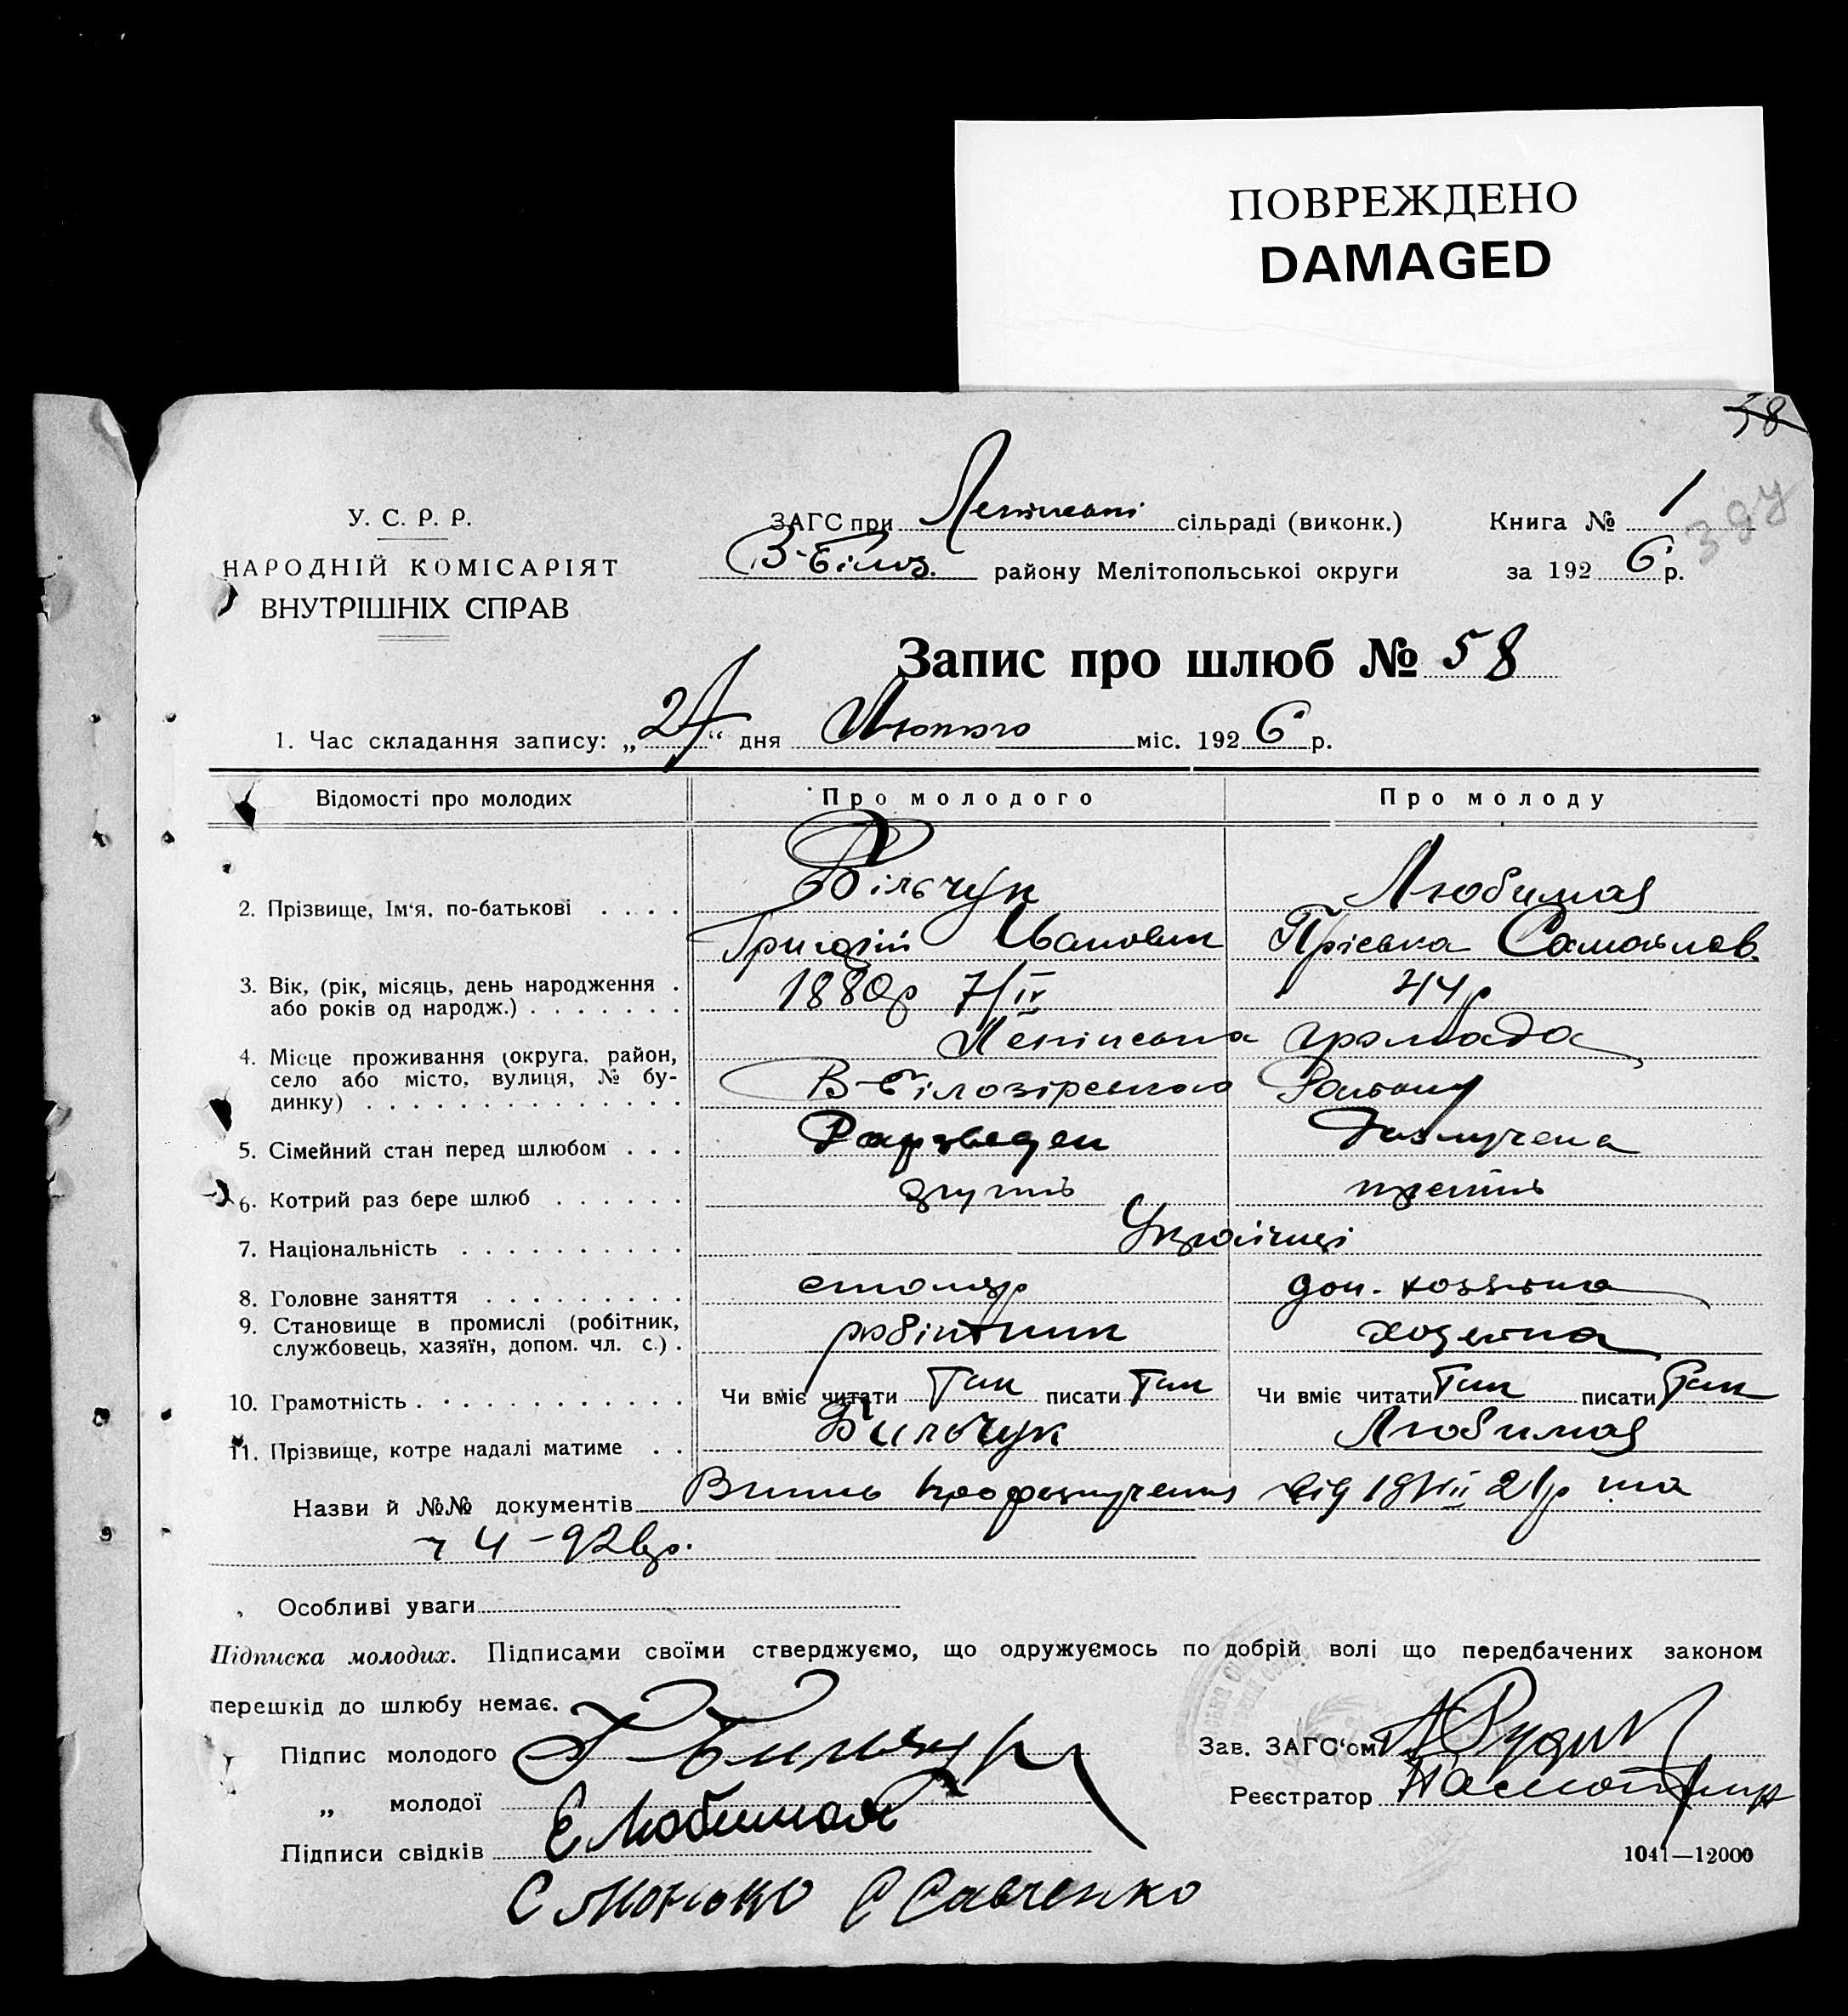 ПОВРЕЖДЕНО
DAMAGED
58
У. С. Р. Р.
НАРОДНІЙ КОМІСАРІЯТ
ВНУТРІШНІХ СПРАВ
ЗАГС при Ленінській сільраді (виконк.)
В-Білоз. району Мелітопольської округи
Книга № 1
за 1926 р.
Запис про шлюб № 58
1. Час складання запису: „24“ дня Лютого міс. 1926 р.
Відомості про молодих Про молодого Про молоду
2. Прізвище, Ім‘я, по-батькові . . . . Більчук Любимая
Григорій Іванович Пріська Самойлов.
3. Вік, (рік, місяць, день народження . 1880р 7/IV 44р
або років од народж.) . . . . . . .
4. Місце проживання (округа, район, Ленінська громада
село або місто, вулиця, № бу- В-Білозірського Району
динку) . . . . . . . . . . . . . .
5. Сімейний стан перед шлюбом . . . Розведен Разлучена
6. Котрий раз бере шлюб . . . . . . другий третій
7. Національність . . . . . . . . . . Українці
8. Головне заняття . . . . . . . . . столяр дом. хозяйка
9. Становище в промислі (робітник, робітник хозяйка
службовець, хазяїн, допом. чл. с.) .
10. Грамотність . . . . . . . . . . . . Чи вміє читати Так писати Так Чи вміє читати Так писати Так
11. Прізвище, котре надалі матиме . . Бильчук Любимая
Назви й №№ документів від та
Особливі уваги
Підписка молодих. Підписами своїми стверджуємо, що одружуємось по добрій волі що передбачених законом
перешкід до шлюбу немає.
Підпис молодого Г Бильчук
„ молодої Е Любимая
Підписи свідків
С Савченко
Зав. ЗАГС‘ом
Реєстратор
1041—12000